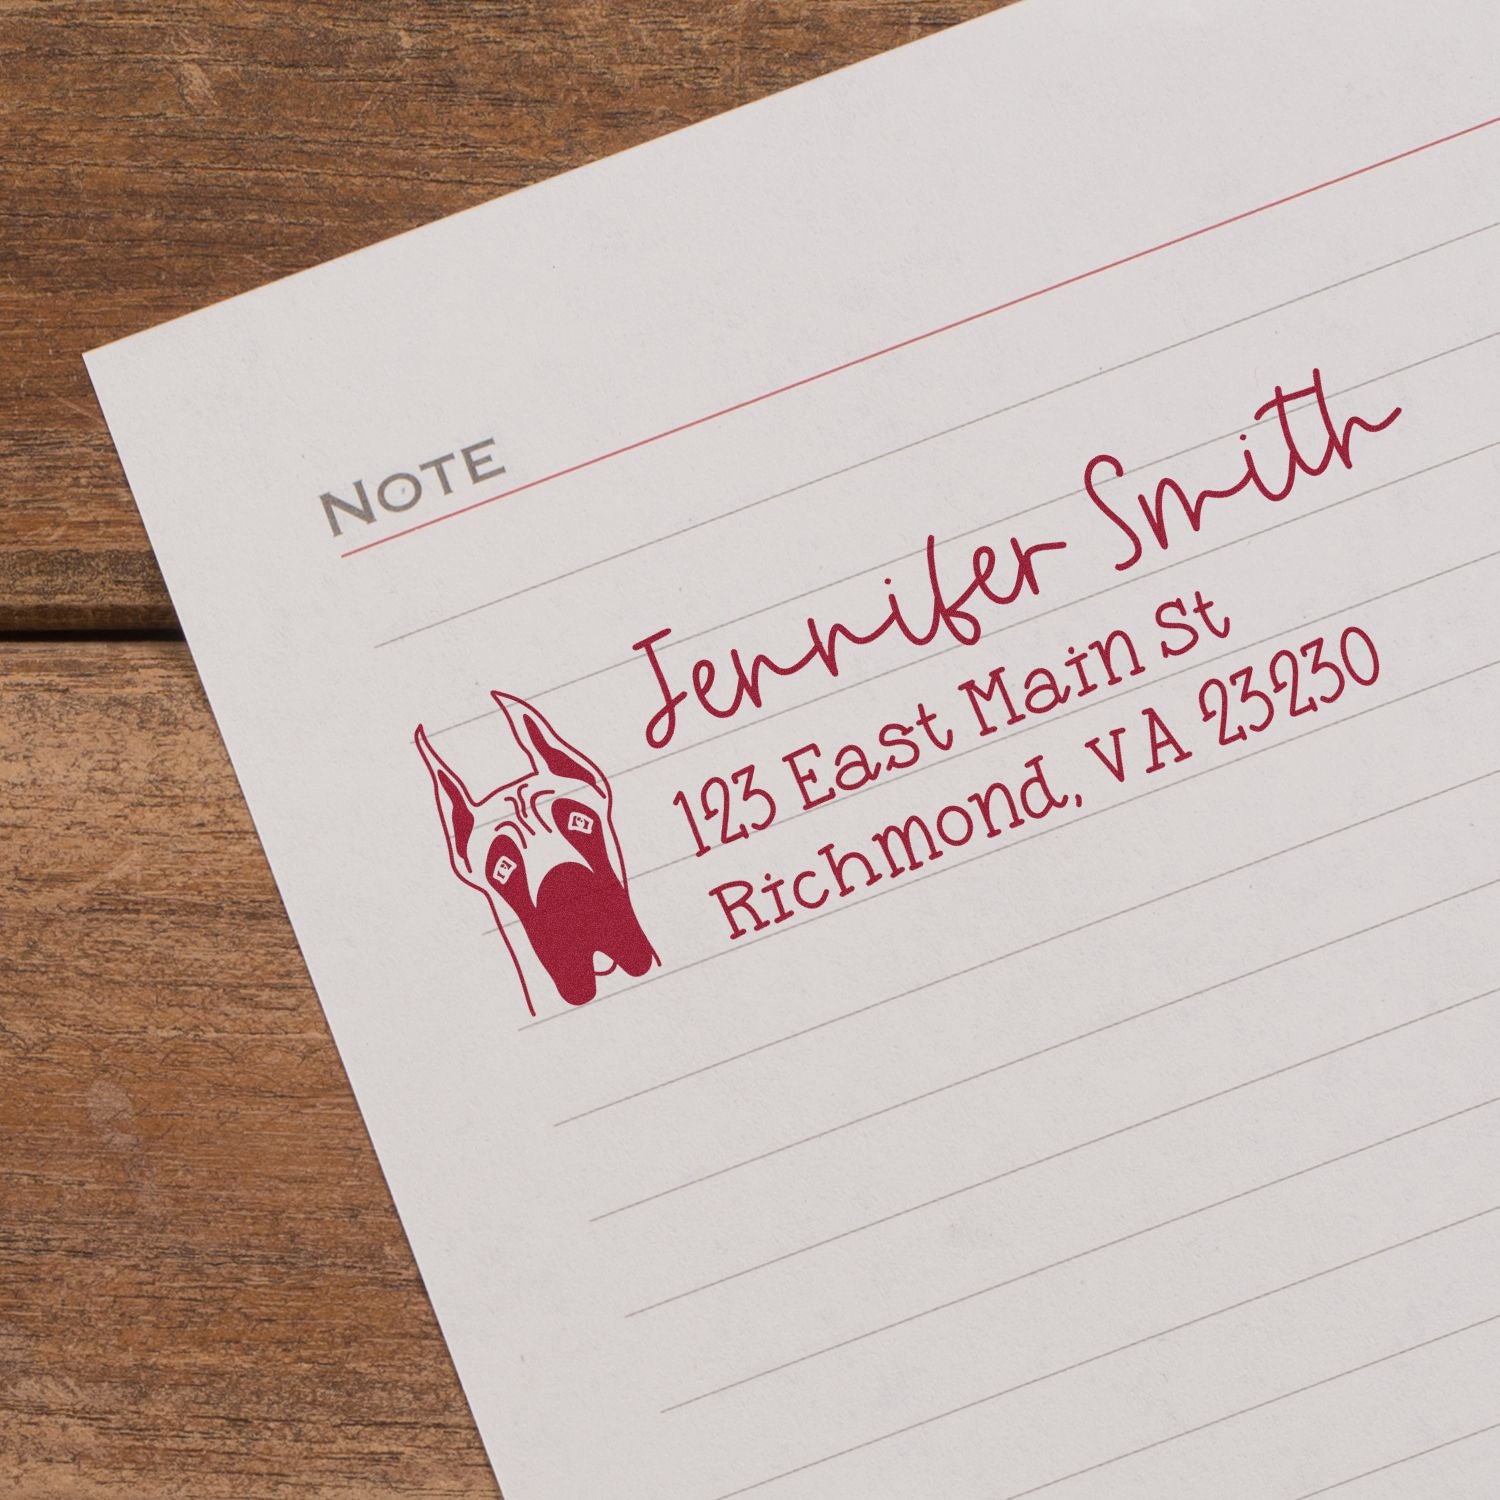 NOTE
Jennifer Smith
123 East Main St
Richmond, VA 23230